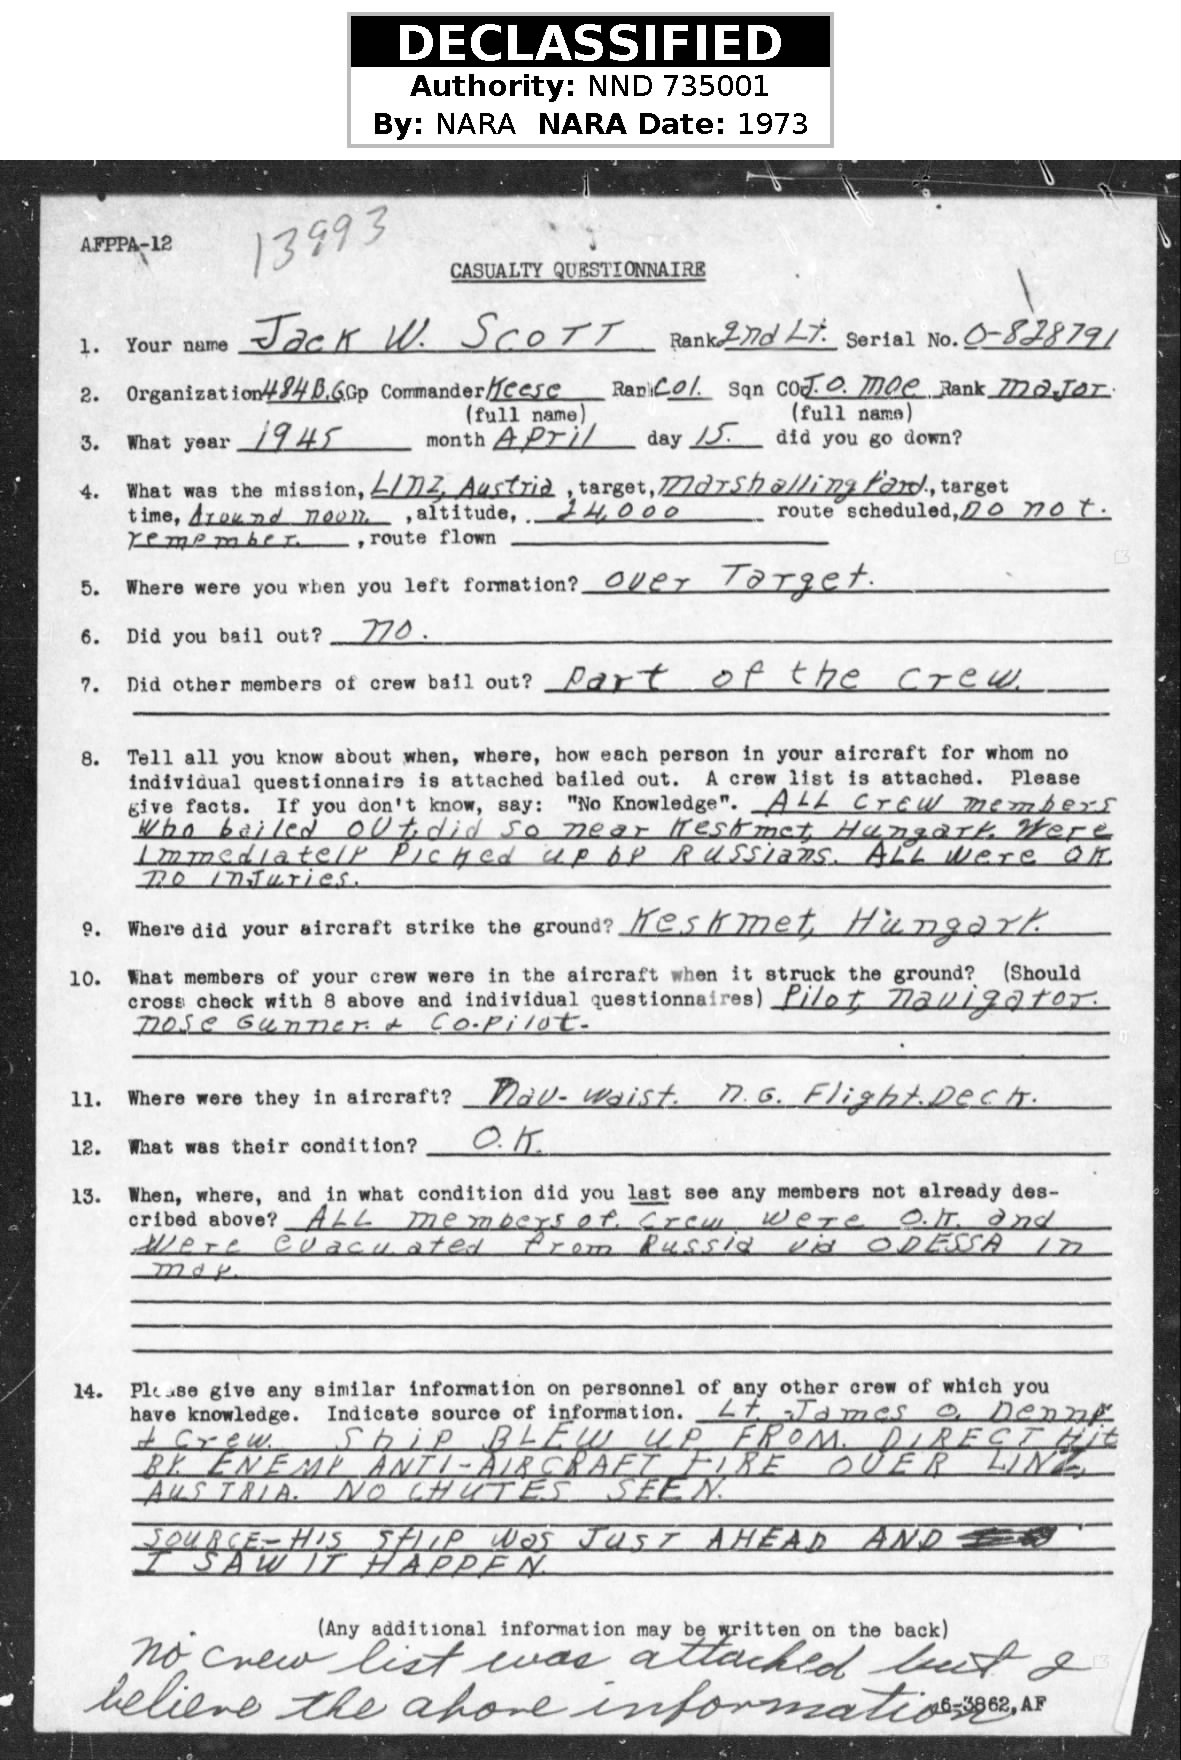 DECLASSIFIED
Authority: NND 735001
By: NARA NARA Date: 1973
AFPPA-12 13993
CASUALTY QUESTIONNAIRE
1. Your name Jack W. Scott Rank 2nd Lt. Serial No. O-828791
2. Organization 484 B.G. Gp Commander Keese Rank Col. Sqn CO J.O. Moe Rank Major.
(full name) (full name)
3. What year 1945 month April day 15. did you go down?
4. What was the mission, LINZ, Austria, target, Marshalling Yard., target
time, Around noon. , altitude, 24,000 route scheduled, Do not.
remember. , route flown
5. Where were you when you left formation? Over Target.
6. Did you bail out? No.
7. Did other members of crew bail out? Part of the crew.
8. Tell all you know about when, where, how each person in your aircraft for whom no
individual questionnaire is attached bailed out. A crew list is attached. Please
give facts. If you don't know, say: "No Knowledge". ALL crew members
who bailed out, did so near Keskmet, Hungary. Were
Immediately Picked up by Russians. ALL were OK
no injuries.
9. Where did your aircraft strike the ground? Keskmet, Hungary.
10. What members of your crew were in the aircraft when it struck the ground? (Should
cross check with 8 above and individual questionnaires) Pilot, navigator.
nose Gunner. + Co-Pilot-
11. Where were they in aircraft? Nav- waist. N.G. Flight. Deck.
12. What was their condition? O.K.
13. When, where, and in what condition did you last see any members not already des-
cribed above? ALL members of. crew were O.K. and
were evacuated from Russia via ODESSA in
may.
14. Please give any similar information on personnel of any other crew of which you
have knowledge. Indicate source of information. Lt. James O. Denny
+ Crew. Ship BLEW UP FROM. DIRECT Hit
BY. ENEMY ANTI-AIRCRAFT FIRE OVER LINZ,
AUSTRIA. NO CHUTES SEEN.
SOURCE-HIS SHIP WAS JUST AHEAD AND
I SAW IT HAPPEN.
(Any additional information may be written on the back)
no crew list was attached but I
believe the above information
6-3862, AF